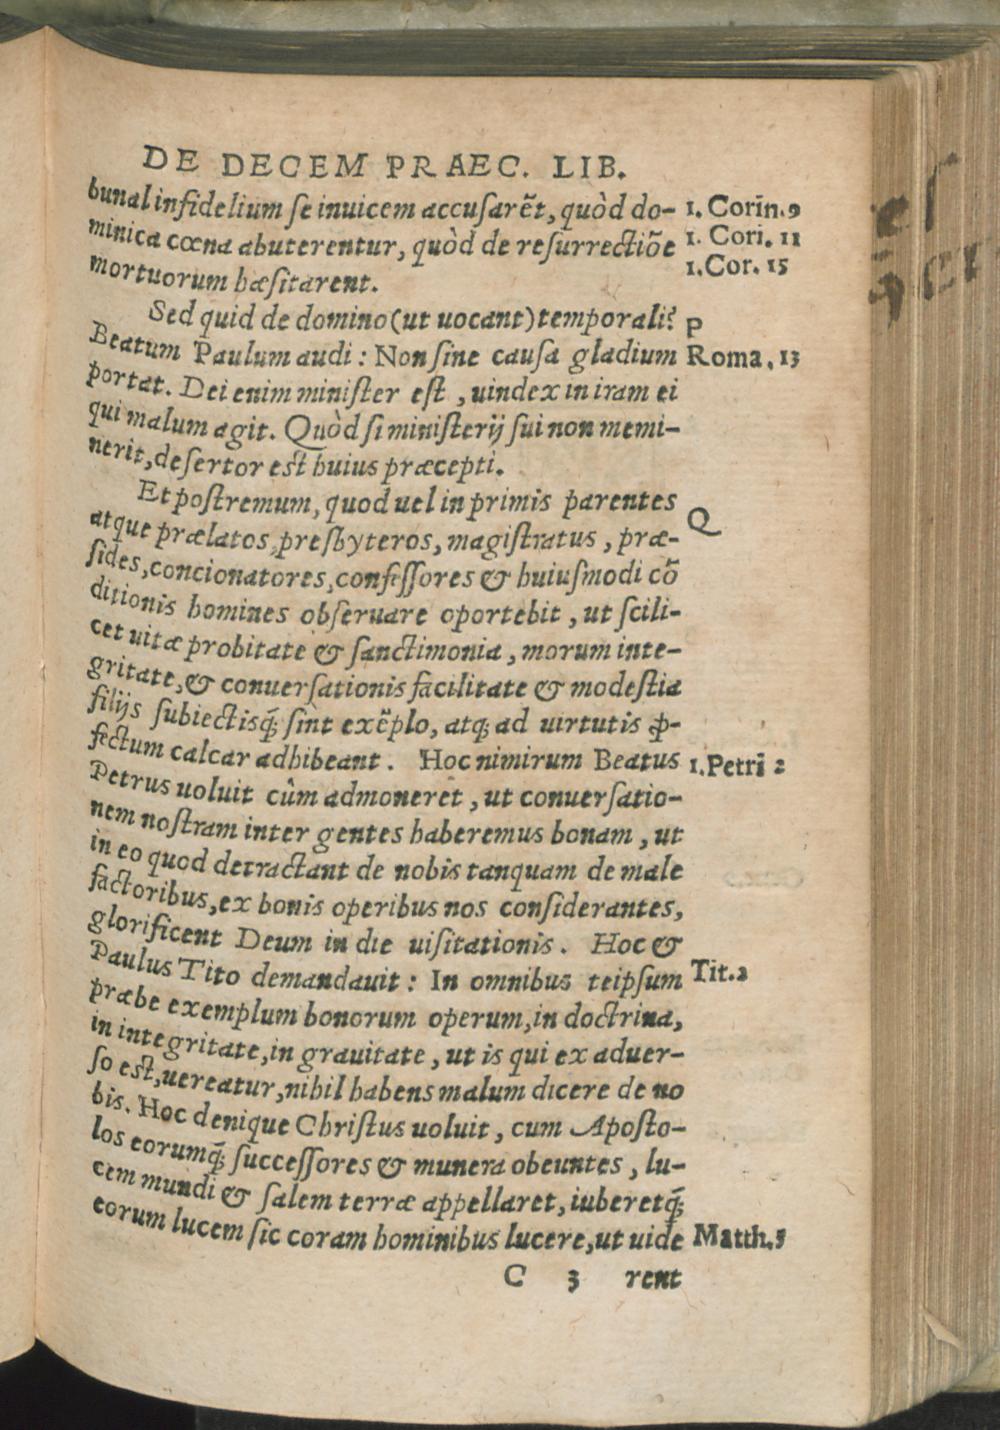 DE DECEM PRAEC. LIB.
bunal infidelium se inuicem accusarēt, quòd do- 1. Corin. 9
minica cœna abuterentur, quòd de resurrectiōe 1. Cori. 11
mortuorum hæsitarent. 1. Cor. 15
Sed quid de domino (ut uocant) temporali? P
Beatum Paulum audi: Non sine causa gladium Roma. 13
portat. Dei enim minister est, uindex in iram ei
qui malum agit. Quòd si ministerij sui non memi-
nerit, desertor est huius præcepti.
Et postremum, quod uel in primis parentes
atque prælatos, presbyteros, magistratus, præ- Q
sides, concionatores, confessores & huiusmodi cō
ditionis homines obseruare oportebit, ut scili-
cet uitæ probitate & sanctimonia, morum inte-
gritate, & conuersationis facilitate & modestia
filijs subiectisq́; sint exēplo, atq; ad uirtutis ꝓ-
fectum calcar adhibeant. Hoc nimirum Beatus 1. Petri 2
Petrus uoluit cûm admoneret, ut conuersatio-
nem nostram inter gentes haberemus bonam, ut
in eo quod detractant de nobis tanquam de male
factoribus, ex bonis operibus nos considerantes,
glorificent Deum in die uisitationis. Hoc &
Paulus Tito demandauit: In omnibus teipsum Tit. 2
præbe exemplum bonorum operum, in doctrina,
in integritate, in grauitate, ut is qui ex aduer-
so est, uereatur, nihil habens malum dicere de no
bis. Hoc denique Christus uoluit, cum Aposto-
los eorumq́; successores & munera obeuntes, lu-
cem mundi & salem terræ appellaret, iuberetq́;
eorum lucem sic coram hominibus lucere, ut uide Matth. 5
C 3 rent